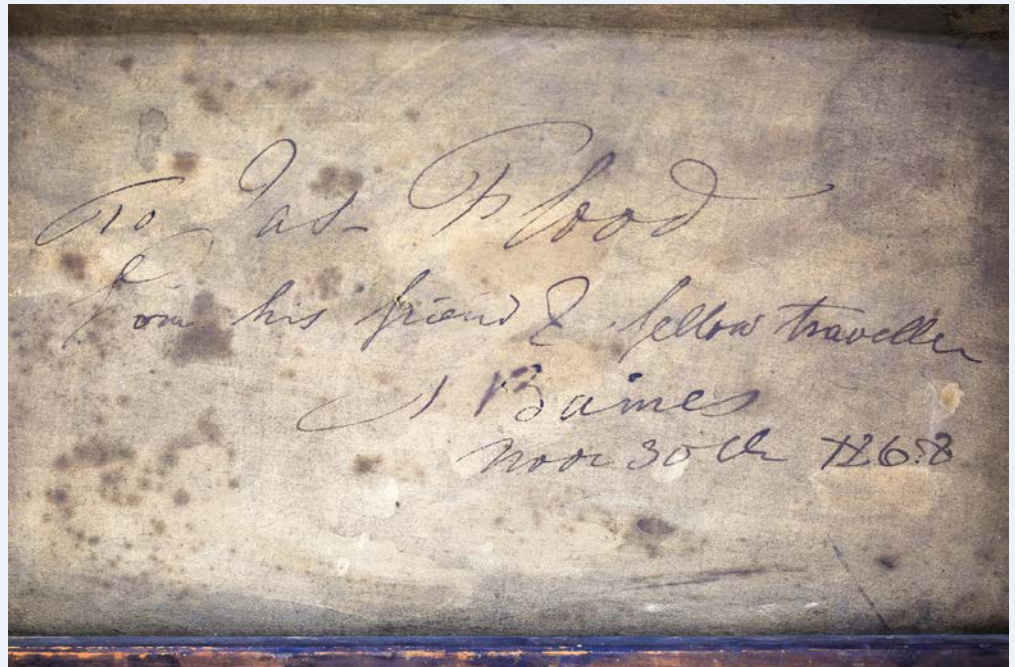 To Jas Flood
from his friend & fellow traveller
J Baines
Nov 30th 1868